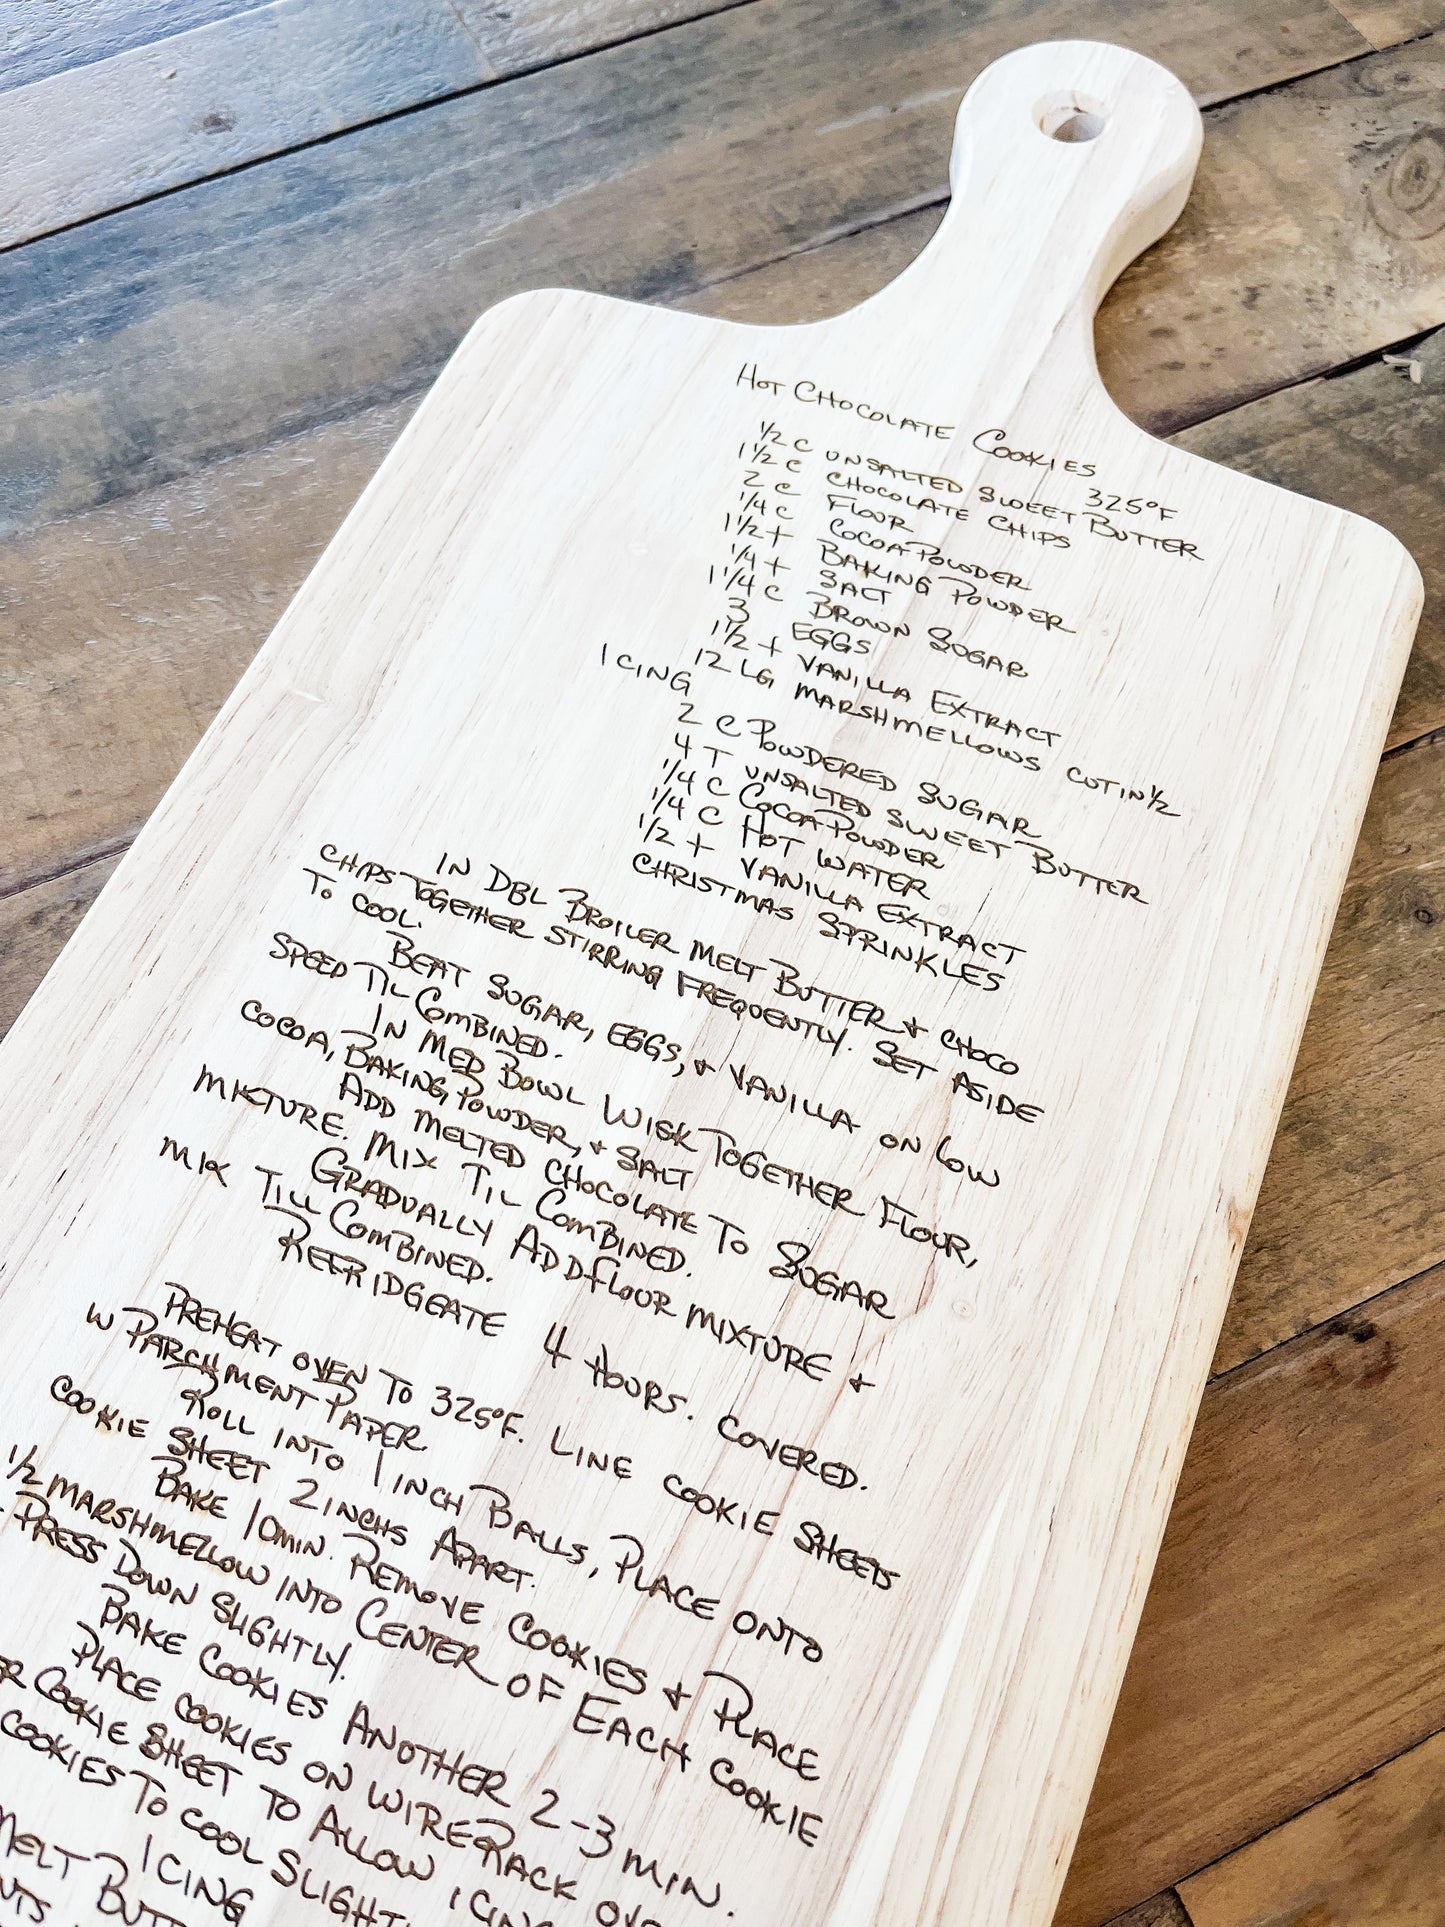 HOT CHOCOLATE COOKIES
325°F
1/2 C UNSALTED SWEET BUTTER
1 1/2 C CHOCOLATE CHIPS
2 C FLOUR
1/4 C COCOA POWDER
1 1/2 t BAKING POWDER
1/4 t SALT
1 1/4 C BROWN SUGAR
3 EGGS
1 1/2 t VANILLA EXTRACT
12 LG MARSHMELLOWS CUT IN 1/2
ICING
2 C POWDERED SUGAR
4 T UNSALTED SWEET BUTTER
1/4 C COCOA POWDER
1/4 C HOT WATER
1/2 t VANILLA EXTRACT
CHRISTMAS SPRINKLES
IN DBL BROILER MELT BUTTER & CHOCO
CHIPS TOGETHER STIRRING FREQUENTLY. SET ASIDE
TO COOL.
BEAT SUGAR, EGGS, & VANILLA ON LOW
SPEED TIL COMBINED.
IN MED BOWL WISK TOGETHER FLOUR,
COCOA, BAKING POWDER, & SALT
ADD MELTED CHOCOLATE TO SUGAR
MIXTURE. MIX TIL COMBINED.
GRADUALLY ADD FLOUR MIXTURE &
MIX TILL COMBINED.
REFRIDGEATE 4 HOURS. COVERED.
PREHEAT OVEN TO 325°F. LINE COOKIE SHEETS
W PARCHMENT PAPER.
ROLL INTO 1 INCH BALLS, PLACE ONTO
COOKIE SHEET 2 INCHS APART.
BAKE 10 MIN. REMOVE COOKIES & PLACE
1/2 MARSHMELLOW INTO CENTER OF EACH COOKIE
PRESS DOWN SLIGHTLY.
BAKE COOKIES ANOTHER 2-3 MIN.
PLACE COOKIES ON WIRE RACK OVE
ER COOKIE SHEET TO ALLOW ICING
COOKIES TO COOL SLIGHT
ICING
MELT BUTT